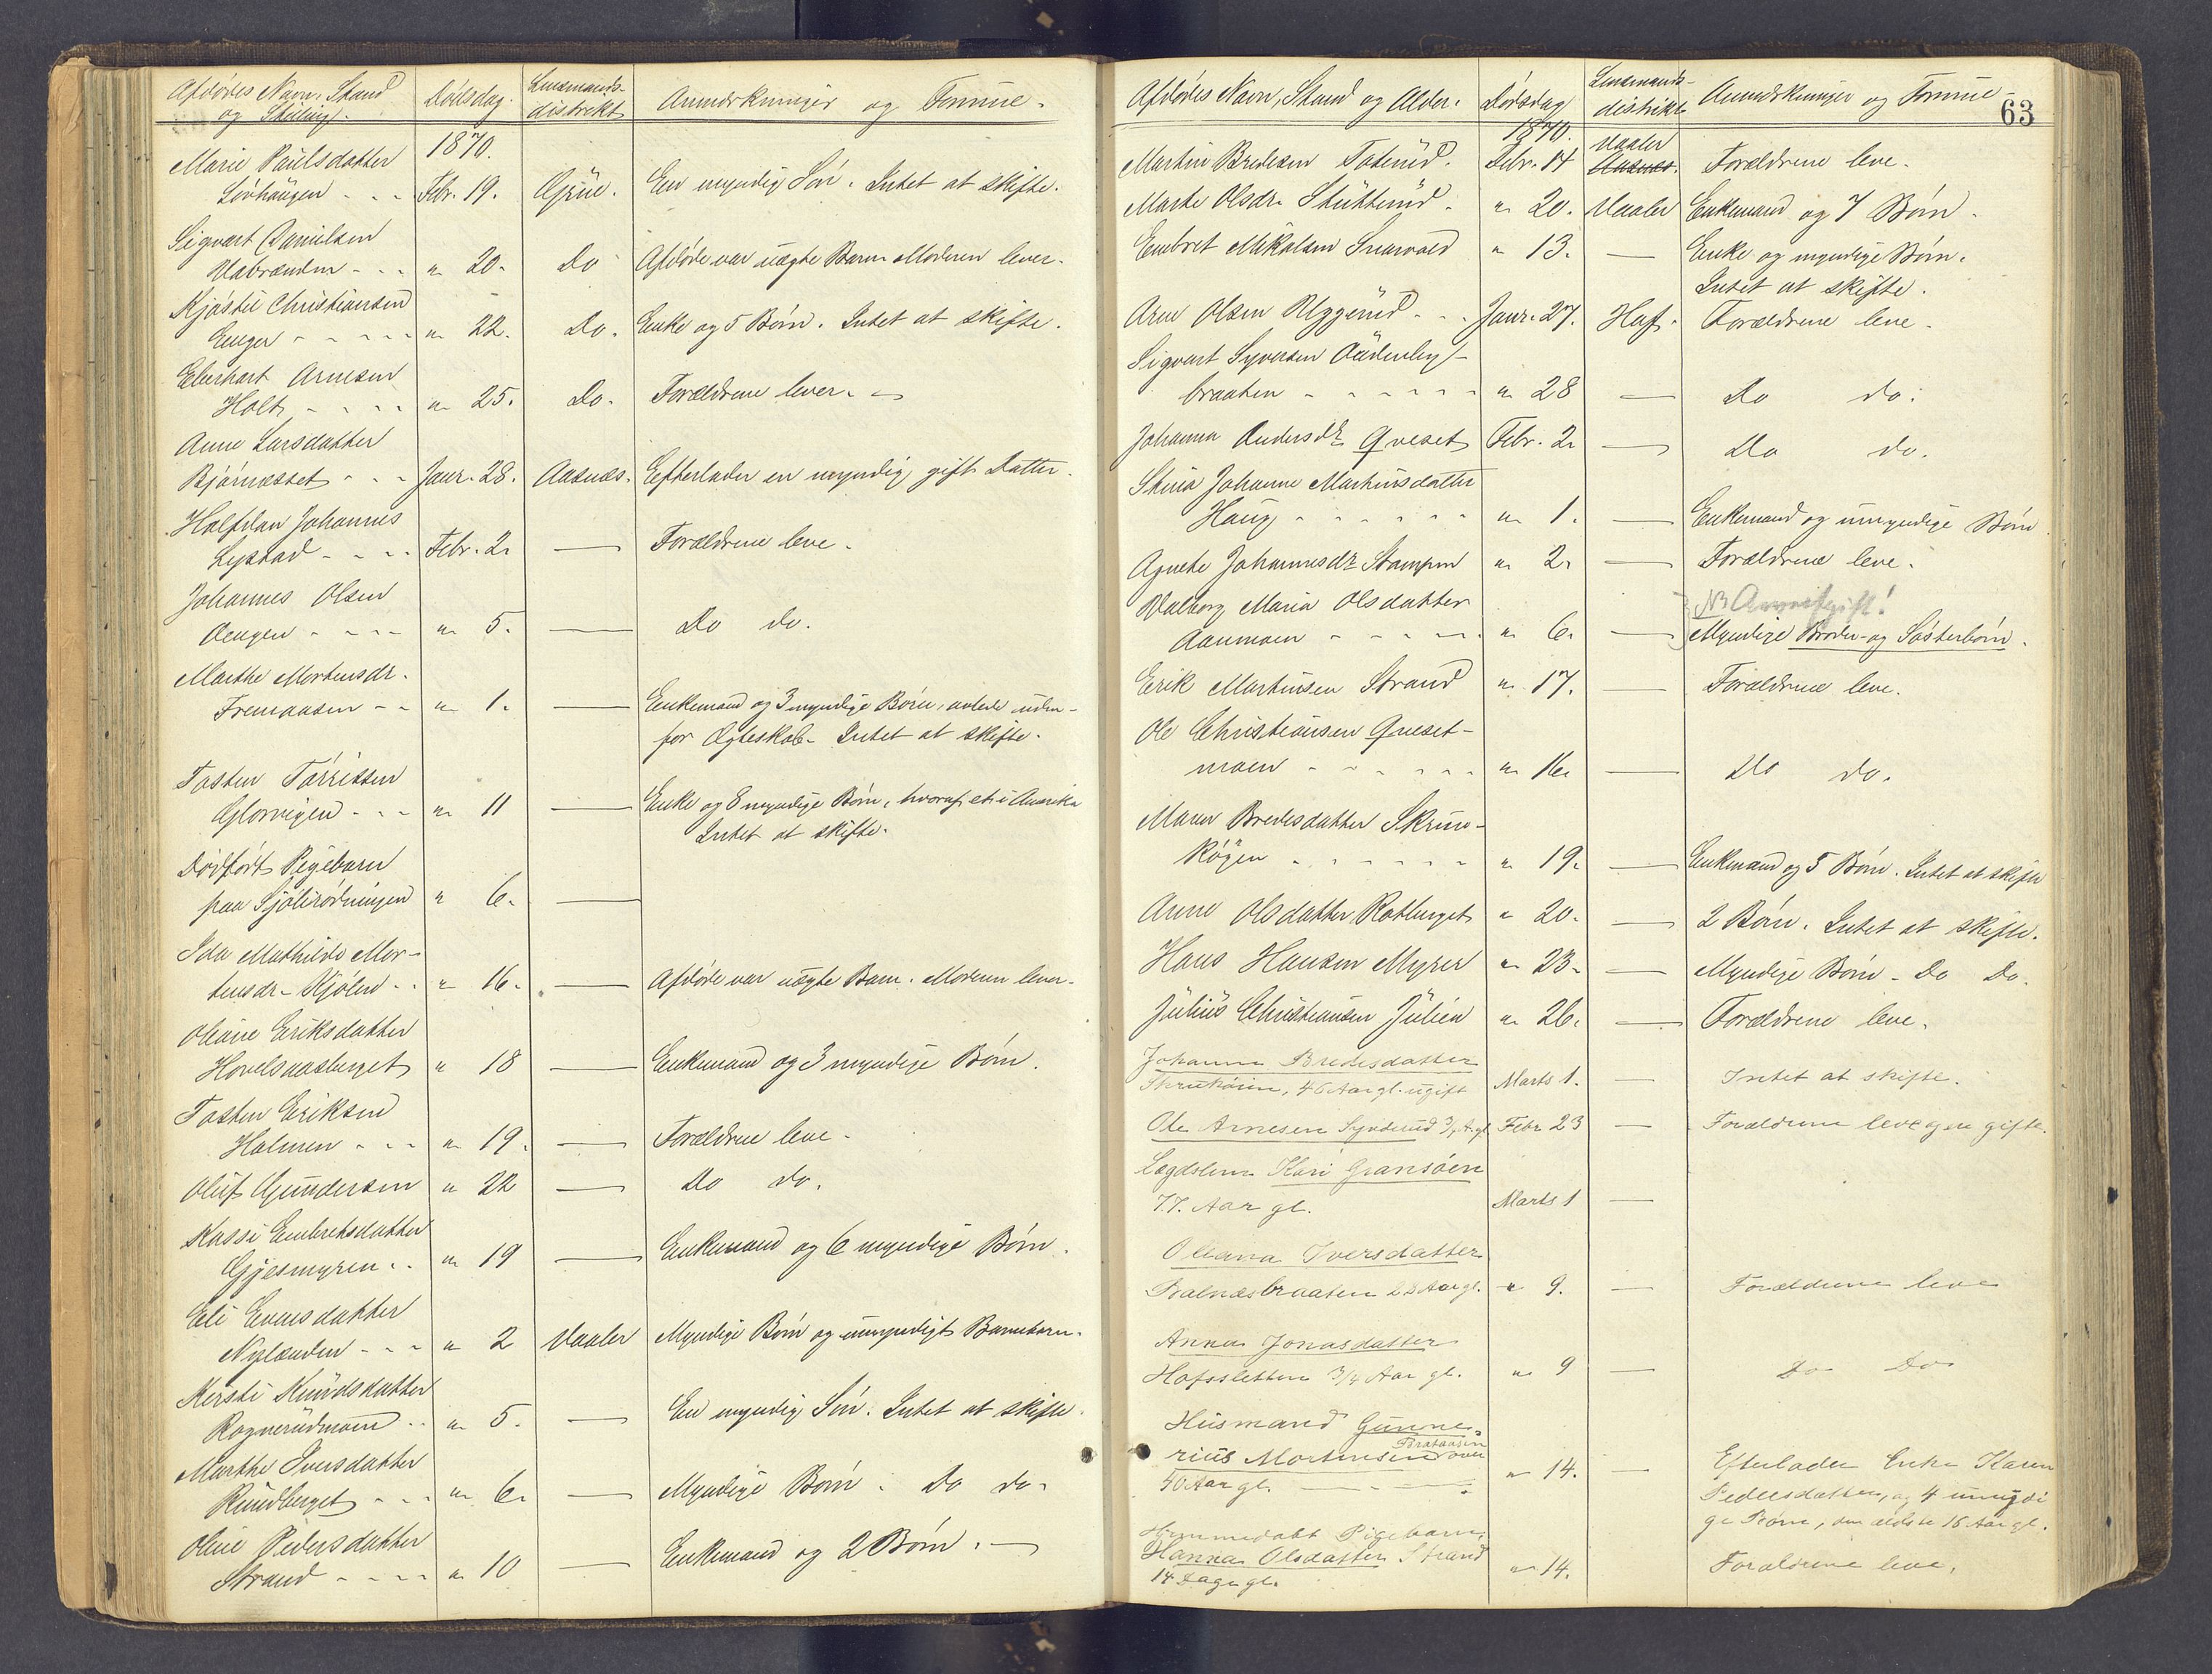 Afdødes Navn, Stand
og Stilling.
Dødsdag.
Lensmands-
distrikt
Anmærkninger og Formue.
1870.
Marie Paulsdatter
Løvhaugen - - Febr. 19. Grue. En myndig Søn. Intet at skifte.
Sigvart Danielsen
- - " 20. Do Afdøde var uægte Barn. Moderen lever.
Kjøstil Christiansen
Enger - - - - " 22. Do. Enke og 5 Børn. Intet at skifte.
Eberhart Arnesen
Holt - - - - " 25. Do. Forældrene lever. -
Anne Larsdatter
Bjørnesset - - - Janr. 28. Aasnæs. Efterlader en myndig gift Datter.
Halfdan Johannes
Lystad - - - Febr. 2. — Forældrene leve.
Johannes Olsen
Aengen - - - - " 5. — Do do.
Marthe Mortensdr.
Fremaasen - - " 1. — Enkemand og 3 myndige Børn, avlede uden-
for Ægteskab. Intet at skifte.
Tosten Tørrissen
Glorvigen - - - " 11 — Enke og 8 myndige Børn, hvoraf et i Amerika
Intet at skifte.
Dødfødt Pigebarn
paa Sjølirødningen " 6. —
Ida Mathilde Mor-
tensdr. Kjølen - - " 16. — Afdøde var uægte Barn. Moderen lever.
Oleane Eriksdatter
Hovelsaasberget " 18 — Enkemand og 3 myndige Børn.
Tosten Eriksen
Holmen - - - " 19. — Forældrene leve.
Oluf Gundersen " 22 — Do do.
Kassi Embretsdatter
Gjesmyren . . " 19 — Enkemand og 6 myndige Børn.
Eli Evensdatter
Nylænden - - - " 2 Vaaler Myndige Børn og umyndigt Barnebarn.
Kersti Knudsdatter
Rognerudmoen - - " 5. — En myndig Søn. Intet at skifte.
Marthe Iversdatter
Rundberget - - - " 6. — Myndige Børn. Do do.
Oline Pedersdatter
Strand - - - - " 10 — Enkemand og 2 Børn. —
63
Afdødes Navn, Stand og Alder.
Dødsdag
Lensmands-
distrikt
Anmærkninger og Formue
1870.
Vaaler
Martin Bredesen Totenud. Febr. 14 Aasnæs. Forældrene leve.
Marte Olsdr. Stuttuud. " 20. Vaaler Enkemand og 7 Børn.
Embret Mikalsen Snarvold " 13. — Enke og myndige Børn.
Intet at skifte.
Arne Olsen Ryggerud - - Janr. 27. Hof. Forældrene leve.
Sigvart Syversen
braaten - - - - - - " 28 — Do do.
Johanna Andersdr. Qveset Febr. 2. — Do do.
Stina Johanne Martinsdatter
Haug - - - - - - " 1. — Enkemand og umyndige Børn
Agnete Johannesdr. Stampen " 2. — Forældrene leve.
Valborg Maria Olsdatter NB Arveafgift!
Aanmoen - - - - - " 6. — Myndige Broder- og Søsterbørn.
Erik Martinsen Strand " 17. — Forældrene leve.
Ole Christiansen Qveset-
moen - - - - - - " 16. — Do do.
Maren Bredesdatter Skrin-
køgen - - - - - " 19. — Enkemand og 5 Børn. Intet at skifte
Anne Olsdatter Rotberget " 20. — 2 Børn. Intet at skifte.
Hans Hansen Myrer " 23. — Myndige Børn. Do Do.
Julius Christiansen Julien " 26. — Forældrene leve.
Johanne Bredesdatter
46 Aar gl. ugift Marts 1. — Intet at skifte.
Ole Arnesen Febr 23 — Forældrene leve og ere gifte.
Lægdslem Kari Gransøen
77. Aar gl. Marts 1 —
Oleana Iversdatter
Balnæsbraaten 28 Aar gl. " 9. — Forældrene leve
Anna Jonasdatter
Hofssletten 3/4 Aar gl. " 9 — Do Do
Husmand Gunne-
rius Mortensen Brataasen over
40 Aar gl. " 14. — Efterlader Enke Karen
Pedersdatter, og 4 umyndi
ge Børn, den ældste 15 Aar gl.
Hjemmedøbt Pigebarn,
Hanna Olsdatter Strand
14 Dage gl. " 14. Forældrene leve.